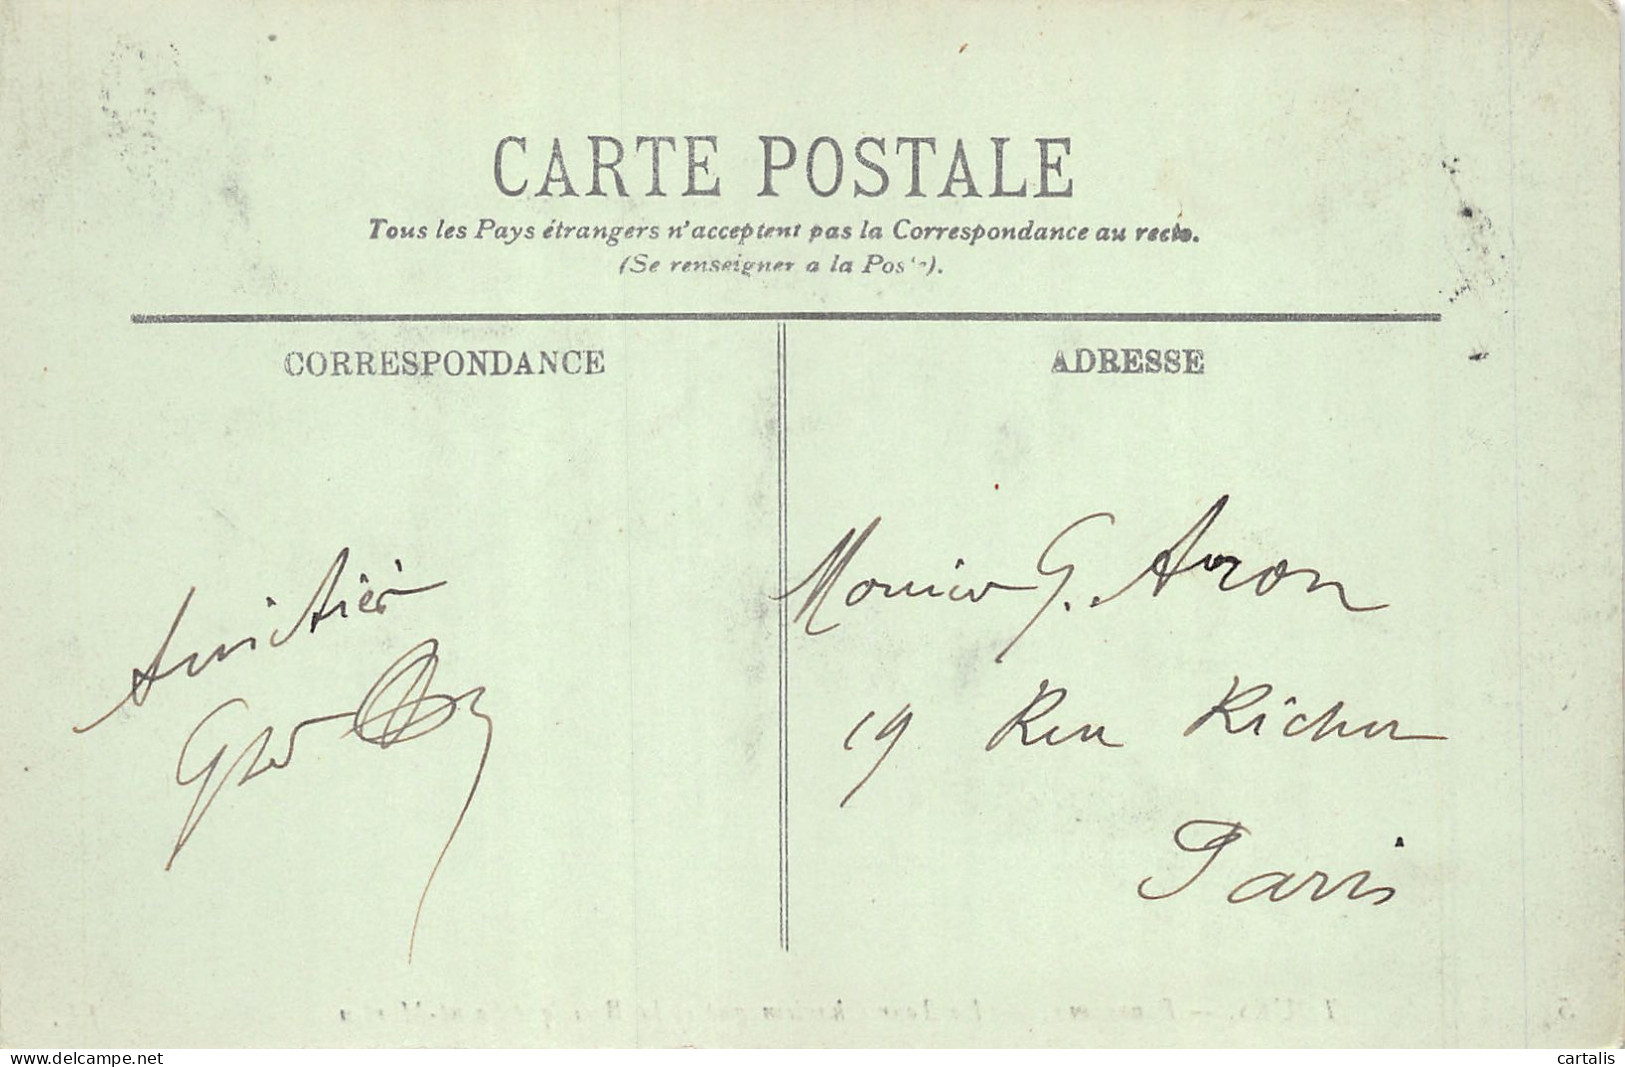 CARTE POSTALE
Tous les Pays étrangers n'acceptent pas la Correspondance au recto.
(Se renseigner a la Poste).
CORRESPONDANCE
ADRESSE
Amitiés
Monsieur G. Aron
19 Rue Richer
Paris
www.delcampe.net
cartalis